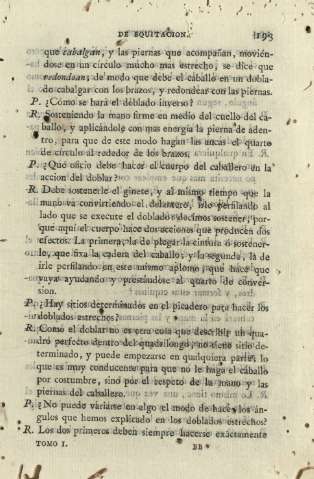 DE EQUITACION. 193
que cabalgan, y las piernas que acompañan, movién-
dose en un círculo mucho mas estrecho, se dice que
redondean; de modo que debe el caballo en un dobla-
do cabalgar con los brazos, y redondear con las piernas.
P. ¿Cómo se hará el doblado inverso?
R. Sosteniendo la mano firme en medio del cuello del ca-
ballo, y aplicándole con mas energía la pierna de aden-
tro, para que de este modo hagan las ancas el quarto
de círculo al rededor de los brazos.
P. ¿Qué oficio debe hacer el cuerpo del caballero en la
accion del doblar?
R. Debe sostenerle el ginete, y al mismo tiempo que la
mano va convirtiendo el delantero, irle perfilando al
lado que se execute el doblado: decimos sostener, por-
que aquí el cuerpo hace dos acciones que producen dos
efectos. La primera, la de plegar la cintura ó sostener-
le, que fixa la cadera del caballo; y la segunda, la de
irle perfilando en este mismo aplomo, que hace que
vaya ayudando y prestándose al quarto de conver-
sion.
P. ¿Hay sitios determinados en el picadero para hacer los
doblados estrechos?
R. Como el doblar no es otra cosa que describir un qua-
dro perfecto dentro del quadrilongo, no tiene sitio de-
terminado, y puede empezarse en qualquiera parte, lo
que es muy conducente para que no le haga el caballo
por costumbre, sino por el respeto de la mano y las
piernas del caballero.
P. ¿No puede variarse en algo el modo de hacer los án-
gulos que hemos explicado en los doblados estrechos?
R. Los dos primeros deben siempre hacerse exactamente
TOMO I. BB